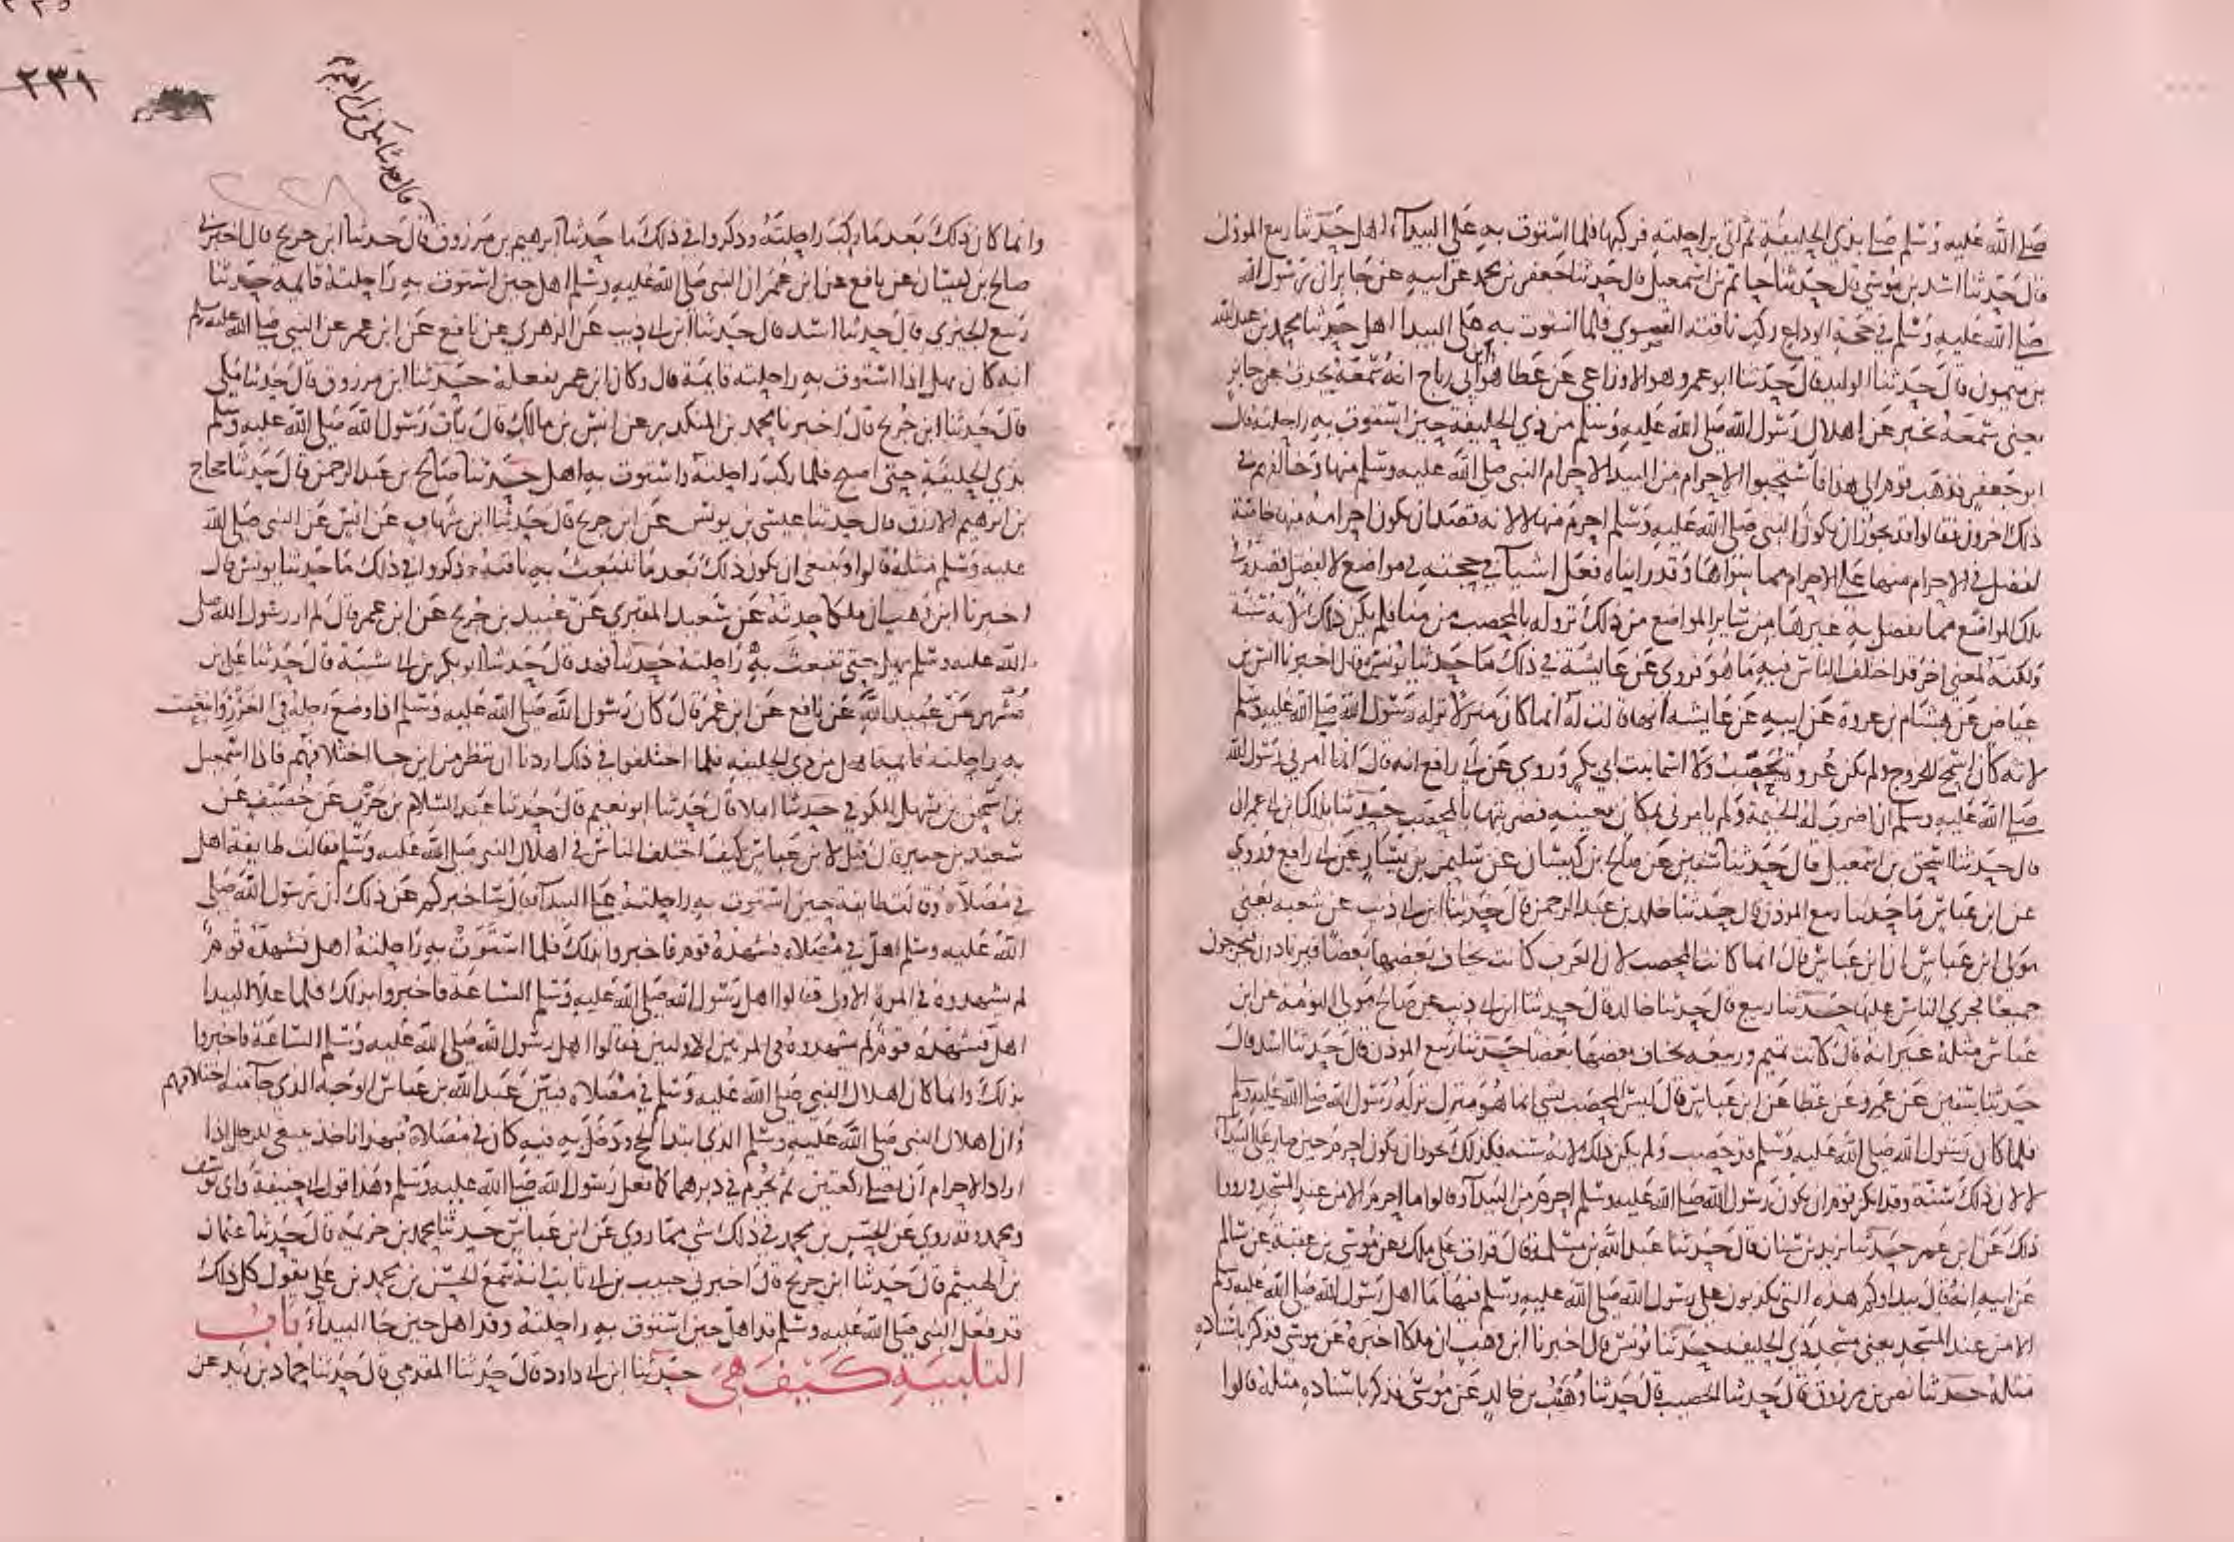 صلى الله عليه وسلم صلى بذي الحليفة ثم اتى براحلته فركبها فلما استوت به على البيداء اهل حدثنا ربيع الموذن
قال حدثنا اسد بن موسى قال حدثنا حاتم بن اسمعيل قال حدثنا جعفر بن محمد عن ابيه عن جابر ان رسول الله
صلى الله عليه وسلم في حجة الوداع ركب ناقته القصوى فلما استوت به على البيدا اهل حدثنا محمد بن عبد الله
بن ميمون قال حدثنا الوليد قال حدثنا ابو عمرو هو الاوزاعي عن عطا هو ابن ابي رباح انه سمعه يحدث عن جابر
يعني سمعه يخبر عن اهلال رسول الله صلى الله عليه وسلم من ذي الحليفة حين استوت به راحلته قال
ابو جعفر فذهب قوم الى هذا فاستحبوا الاحرام من البيدا لاحرام النبي صلى الله عليه وسلم منها وخالفهم في
ذلك اخرون فقالوا قد يجوز ان يكون النبي صلى الله عليه وسلم احرم منها لا لانه قصد ان يكون احرامه منها خاصة
لفضل في الاحرام منها على الاحرام مما سواها وقد رايناه فعل اشيآ في حجته في مواضع لا لفضل قصده في
تلك المواضع مما يفضل به غيرها من سائر المواضع من ذلك نزوله بالمحصب من منا فلم يكن ذلك لانه سنة
ولكنه لمعنى اخر قد اختلف الناس فيه ما هو فروي عن عايشة في ذلك ما حدثنا يونس قال اخبرنا انس بن
عياض عن هشام بن عروة عن ابيه عن عايشه انها قالت له انما كان منزلا نزله رسول الله صلى الله عليه وسلم
لانه كان اسمح للخروج ولم يكن عروة يحصب ولا اسما بنت ابي بكر وروي عن ابي رافع انه قال انما امرني رسول الله
صلى الله عليه وسلم ان اضرب له الخيمة ولم يامرني بمكان بعينه فضربتها بالمحصب حدثنا بذلك ابن ابي عمران
قال حدثنا اسحق بن اسمعيل قال حدثنا سفين عن صالح بن كيسان عن سليمن بن يسار عن ابي رافع وروي
عن ابن عباس ما حدثنا ربيع الموذن قال حدثنا خالد بن عبد الرحمن قال حدثنا ابن ابي ذيب عن شعبه يعني
مولى ابن عباس ان ابن عباس قال انما كانت المحصب لان العرب كانت تخاف بعضها بعضا فيرتادون فيخرجون
جميعا فجرى الناس عليها حدثنا ربيع قال حدثنا خالد قال حدثنا ابن ابي ذيب عن صالح مولى التومة عن ابن
عباس مثله غير انه قال كانت تميم وربيعه تخاف بعضها بعضا حدثنا ربيع الموذن قال حدثنا اسد قال
حدثنا سفين عن عمرو عن عطا عن ابن عباس قال ليس المحصب بشي انما هو منزل نزله رسول الله صلى الله عليه وسلم
فلما كان رسول الله صلى الله عليه وسلم قد حصب ولم يكن ذلك لانه سنه فكذلك يجوز ان يكون احرم حين صار على البيدآ
لا لان ذلك سنة وقد انكر قوم ان يكون رسول الله صلى الله عليه وسلم احرم من البيدآ وقالوا ما احرم الا من عند المسجد ورووا
ذلك عن ابن عمر حدثنا يزيد بن سنان قال حدثنا عبد الله بن مسلمة قال قرات على ملك عن موسى بن عقبة عن سالم
عن ابيه انه قال بيداوكم هذه التي تكذبون على رسول الله صلى الله عليه وسلم فيها ما اهل رسول الله صلى الله عليه وسلم
الا من عند المسجد يعني مسجد ذي الحليفه حدثنا يونس قال اخبرنا ابن وهب ان ملكا اخبره عن موسى فذكر باسناده
مثله حدثنا نصر بن مرزوق قال حدثنا الخصيب قال حدثنا وهيب بن خالد عن موسى فذكر باسناده مثله قالوا
٢٣١
قال حدثنا مكي بن ابرهيم
وانما كان ذلك بعد ما ركب راحلته وذكروا في ذلك ما حدثنا ابرهيم بن مرزوق قال حدثنا ابن جريج قال اخبرني
صالح بن كيسان عن نافع عن ابن عمر ان النبي صلى الله عليه وسلم اهل حين استوت به راحلته قايمه حدثنا
ربيع الجيزي قال حدثنا اسد قال حدثنا ابن ابي ذيب عن الزهري عن نافع عن ابن عمر عن النبي صلى الله عليه وسلم
انه كان يهل اذا استوت به راحلته قايمة قال وكان ابن عمر يفعله حدثنا ابن مرزوق قال حدثنا مكي
قال حدثنا ابن جريج قال اخبرنا محمد بن المنكدر عن انس بن مالك قال بات رسول الله صلى الله عليه وسلم
بذي الحليفة حتى اصبح فلما ركب راحلته واستوت به اهل حدثنا صالح بن عبد الرحمن قال حدثنا حجاج
بن ابرهيم الازرق قال حدثنا عيسى بن يونس عن ابن جريج قال حدثنا ابن شهاب عن انس عن النبي صلى الله
عليه وسلم مثله قالوا وينبغي ان يكون ذلك بعد ما تنبعث به ناقته وذكروا في ذلك ما حدثنا يونس قال
اخبرنا ابن وهب ان ملكا حدثه عن سعيد المقبري عن عبيد بن جريج عن ابن عمر قال لم ار رسول الله صلى
الله عليه وسلم يهل حتى تنبعث به راحلته حدثنا فهد قال حدثنا ابو بكر بن ابي شيبة قال حدثنا علي بن
مسهر عن عبيد الله عن نافع عن ابن عمر قال كان رسول الله صلى الله عليه وسلم اذا وضع رجله في الغرز وانبعثت
به راحلته قايمة اهل من ذي الحليفه فلما اختلفوا في ذلك اردنا ان ننظر من اين جا اختلافهم فاذا اسمعيل
بن اسحق بن سهل الكوفي حدثنا املا قال حدثنا ابو نعيم قال حدثنا عبد السلام بن حرب عن خصيف عن
سعيد بن جبير قال قيل لابن عباس كيف اختلف الناس في اهلال النبي صلى الله عليه وسلم فقالت طايفة اهل
في مصلاه وقالت طايفة حين استوت به راحلته على البيدآ قال ساخبركم عن ذلك ان رسول الله صلى
الله عليه وسلم اهل في مصلاه فشهده قوم فاخبروا بذلك فلما استوت به راحلته اهل فشهده قوم
لم يشهدوه في المرة الاولى فقالوا اهل رسول الله صلى الله عليه وسلم الساعة فاخبروا بذلك فلما علا البيدا
اهل فشهده قوم لم يشهدوه في المرتين الاوليين فقالوا اهل رسول الله صلى الله عليه وسلم الساعة فاخبروا
بذلك وانما كان اهلال النبي صلى الله عليه وسلم في مصلاه فبين عبد الله بن عباس الوجه الذي جآ منه اختلافهم
وان اهلال النبي صلى الله عليه وسلم الذي ابتدا الحج ودخل به فيه كان في مصلاه فبهذا ناخذ ينبغي للرجل اذا
اراد الاحرام ان يصلي ركعتين ثم يحرم في دبرهما كما فعل رسول الله صلى الله عليه وسلم وهذا قول ابي حنيفة وابي يوسف
ومحمد وقد روي عن الحسن بن محمد في ذلك شي مما روي عن ابن عباس حدثنا محمد بن خزيمة قال حدثنا عثمان
بن الهيثم قال حدثنا ابن جريج قال اخبرني حبيب بن ابي ثابت انه سمع الحسن بن محمد بن علي يقول كل ذلك
قد فعل النبي صلى الله عليه وسلم قد اهل حين استوت به راحلته وقد اهل حين جا البيداء باب
التلبية كيف هي حدثنا ابن ابي داود قال حدثنا المقدمي قال حدثنا حماد بن زيد عن